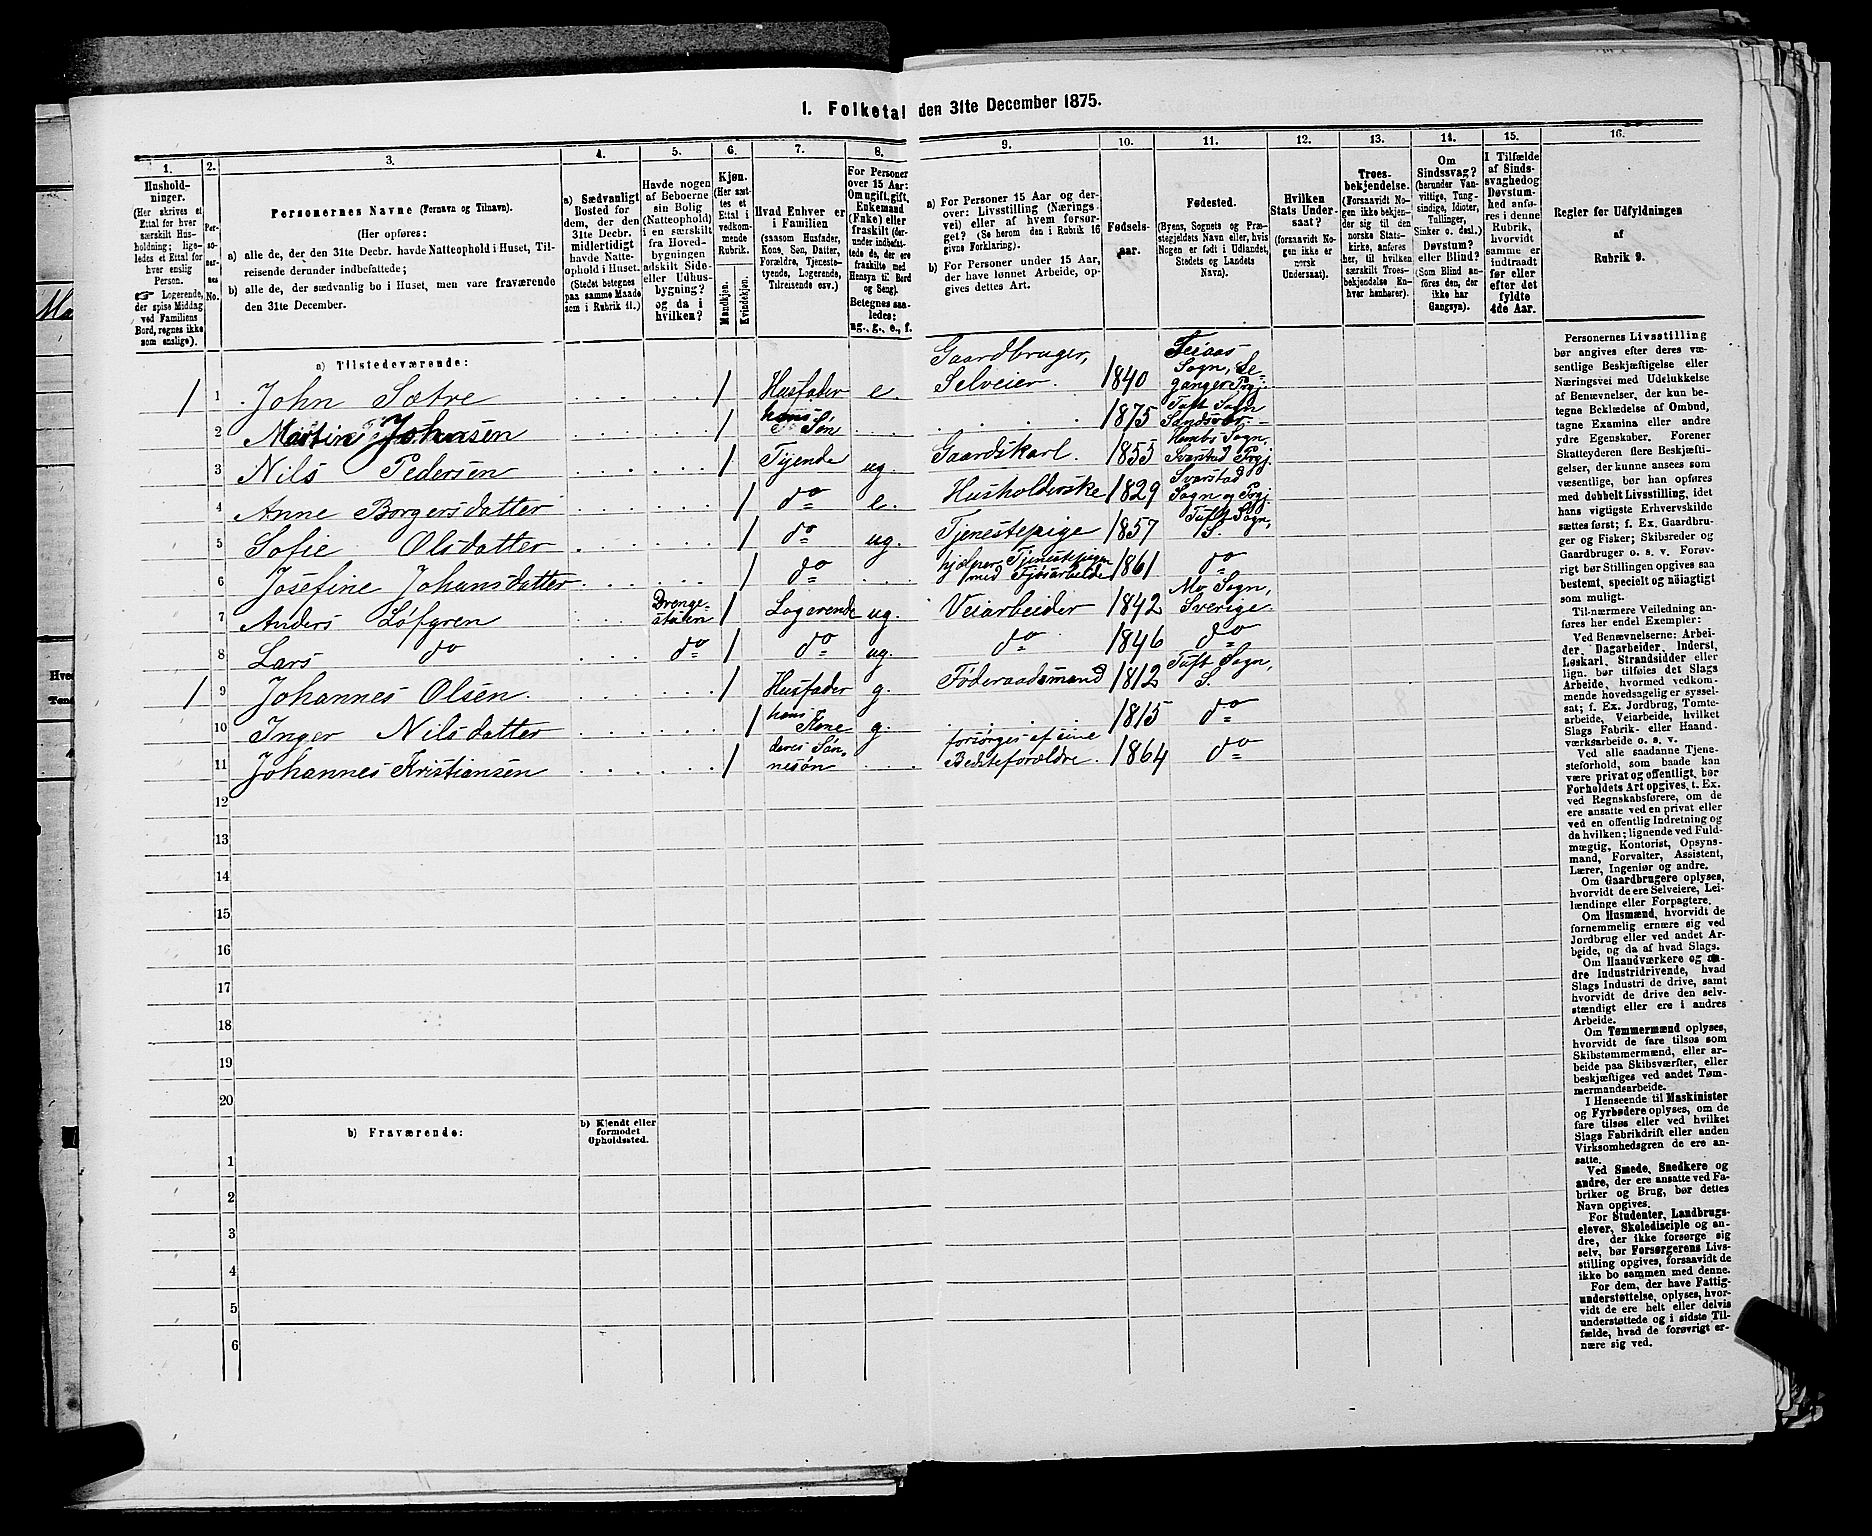 1. Folketal den 31te December 1875.
1. 2. 3. 4. 5. 6. 7. 8. 9. 10. 11. 12. 13. 14. 15. 16.
Hushold-
ninger.
(Her skrives et
Ettal for hver
særskilt Hus-
holdning; lige-
ledes et Ettal for
hver enslig
Person.
☞ Logerende,
der spise Middag
ved Familiens
Bord, regnes ikke
som enslige).
Personernes No.
Personernes Navne (Fornavn og Tilnavn).
(Her opføres:
a) alle de, der den 31te Decbr. havde Natteophold i Huset, Til-
reisende derunder indbefattede;
b) alle de, der sædvanlig bo i Huset, men vare fraværende
den 31te December.
a) Sædvanligt
Bosted for
dem, der den
31te Decbr.
midlertidigt
havde Natte-
ophold i Huset.
(Stedet betegnes
paa samme Maade
som i Rubrik 11.)
Havde nogen
af Beboerne
sin Bolig
(Natteophold)
i en særskilt
fra Hoved-
bygningen
adskilt Side-
eller Udhus-
bygning?
og da i
hvilken?
Kjøn.
(Her sæt-
tes et
Ettal i
vedkom-
mende
Rubrik.
Mandkjøn.
Kvindekjøn.
Hvad Enhver er
i Familien
(saasom Husfader,
Kone, Søn, Datter,
Forældre, Tjeneste-
tyende, Logerende,
Tilreisende osv.)
For Personer
over 15 Aar:
Om ugift, gift,
Enkemand
(Enke) eller
fraskilt (der-
under indbefat-
tede de, der ere
fraskilte med
Hensyn til Bord
og Seng).
Betegnes saa-
ledes:
ug., g., e., f.
a) For Personer 15 Aar og der-
over: Livsstilling (Nærings-
vei) eller af hvem forsør-
get? (Se herom den i Rubrik 16
givne Forklaring).
b) For Personer under 15 Aar,
der have lønnet Arbeide, op-
gives dettes Art.
Fødsels-
aar.
Fødested.
(Byens, Sognets og Præ-
stegjeldets Navn eller, hvis
Nogen er født i Udlandet,
Stedets og Landets
Navn).
Hvilken
Stats Under-
saat?
(forsaavidt No-
gen ikke er
norsk
Undersaat).
Troes-
bekjendelse.
(Forsaavidt No-
gen ikke bekjen-
der sig til den
norske Stats-
kirke, anføres
her, til hvilken
særskilt Troes-
bekjendelse En-
hver henhører).
Om
Sindssvag?
(herunder Van-
vittige, Tung-
sindige, Idioter,
Tullinger,
Sinker o. desl.)
Døvstum?
eller Blind?
(Som Blind an-
føres den, der
ikke har
Gangsyn).
I Tilfælde
af Sinds-
svaghed og
Døvstum-
hed anfø-
res i denne
Rubrik,
hvorvidt
samme er
indtraadt
før eller
efter det
fyldte
4de Aar.
Regler for Udfyldningen
af
Rubrik 9.
a) Tilstedeværende:
1 1 John Sætre 1 Husfader e. Gaardbruger, Selveier. 1840 Sogn, Le-ganger Prgj.
2 Martin Johnsen 1 hans Søn 1875 Tuft Sogn Sandsvær.
3 Nils Pedersen 1 Tjende ug. Gaardskarl. 1853 Hembs Sogn, Svarstad Prgj.
4 Anne Borgersdatter 1 do e. Husholderske 1829 Svarstad Sogn og Prgj.
5 Sofie Olsdatter 1 do ug. Tjenestepige 1857 Tuft Sogn, S.
6 Josefine Johansdatter 1 do hjælper Tjenestepigen med Fjøsarbeide 1861 do
7 Anders Løfgren Drenge-stuen 1 Logerende ug. Veiarbeider 1842 Mo Sogn, Sverige
8 Lars do do 1 do ug. do 1846 do
1 9 Johannes Olsen 1 Husfader g. Føderaadsmand 1812 Tuft Sogn, S.
10 Inger Nilsdatter 1 hans Kone g. 1815 do
11 Johannes Kristiansen 1 deres Søn-nesøn forsørges af sine Bedsteforældre. 1864 do
12
13
14
15
16
17
18
19
20
b) Fraværende:
b) Kjendt eller
formodet
Opholdssted.
1
2
3
4
5
6
Personernes Livsstilling
bør angives efter deres væ-
sentlige Beskjæftigelse eller
Næringsvei med Udelukkelse
af Benævnelser, der kun be-
tegne Beklædelse af Ombud,
tagne Examina eller andre
ydre Egenskaber. Forener
Skatteyderen flere Beskjæfti-
gelser, der kunne ansees som
væsentlige, bør han opføres
med dobbelt Livsstilling, idet
hans vigtigste Erhvervskilde
sættes først; f. Ex. Gaardbru-
ger og Fisker; Skibsreder og
Gaardbruger o. s. v. Forøv-
rigt bør Stillingen opgives saa
bestemt, specielt og nøiagtigt
som muligt.
Til nærmere Veiledning an-
føres her endel Exempler:
Ved Benævnelserne: Arbei-
der, Dagarbeider, Inderst,
Løskarl, Strandsidder eller
lign. bør tilføies det Slags
Arbeide, hvormed vedkom-
mende hovedsagelig er syssel-
sat; f. Ex. Jordbrug, Tomte-
arbeide, Veiarbeide, hvilket
Slags Fabrik- eller Haand-
værksarbeide o. s. v.
Ved alle saadanne Tjene-
steforhold, som baade kan
være privat og offentligt, bør
Forholdets Art opgives, t. Ex.
ved Regnskabsførere, om de
ere ansatte ved en privat eller
ved en offentlig Indretning og
da hvilken; lignende ved Fuld-
mægtig, Kontorist, Opsyns-
mand, Forvalter, Assistent,
Lærer, Ingeniør og andre.
Om Gaardbrugere oplyses,
hvorvidt de ere Selveiere, Lei-
lændinge eller Forpagtere.
Om Husmænd, hvorvidt de
fornemmelig ernære sig ved
Jordbrug eller ved andet Ar-
beide, og da af hvad Slags.
Om Haandværkere og an-
dre Industridrivende, hvad
Slags Industri de drive, samt
hvorvidt de drive den selv-
stændigt eller ere i andres
Arbeide.
Om Tømmermænd oplyses,
hvorvidt de fare tilsøs som
Skibstømmermænd, eller ar-
beide paa Skibsværfter, eller
beskjæftiges ved andet Tøm-
mermandsarbeide.
I Henseende til Maskinister
og Fyrbødere oplyses, om de
fare tilsøs eller ved hvilket
Slags Fabrikdrift eller anden
Virksomhedsgren de ere an-
satte.
Ved Smede, Snedkere og
andre, der ere ansatte ved Fa-
briker og Brug, bør dettes
Navn opgives.
For Studenter, Landbrugs-
elever, Skoledisciple og an-
dre, der ikke forsørge sig
selv, bør Forsørgerens Livs-
stilling opgives, forsaavidt de
ikke bo sammen med denne.
For dem, der have Fattig-
understøttelse, oplyses, hvor-
vidt de ere helt eller delvis
understøttede og i sidste Til-
fælde, hvad de forøvrigt er-
nære sig ved.